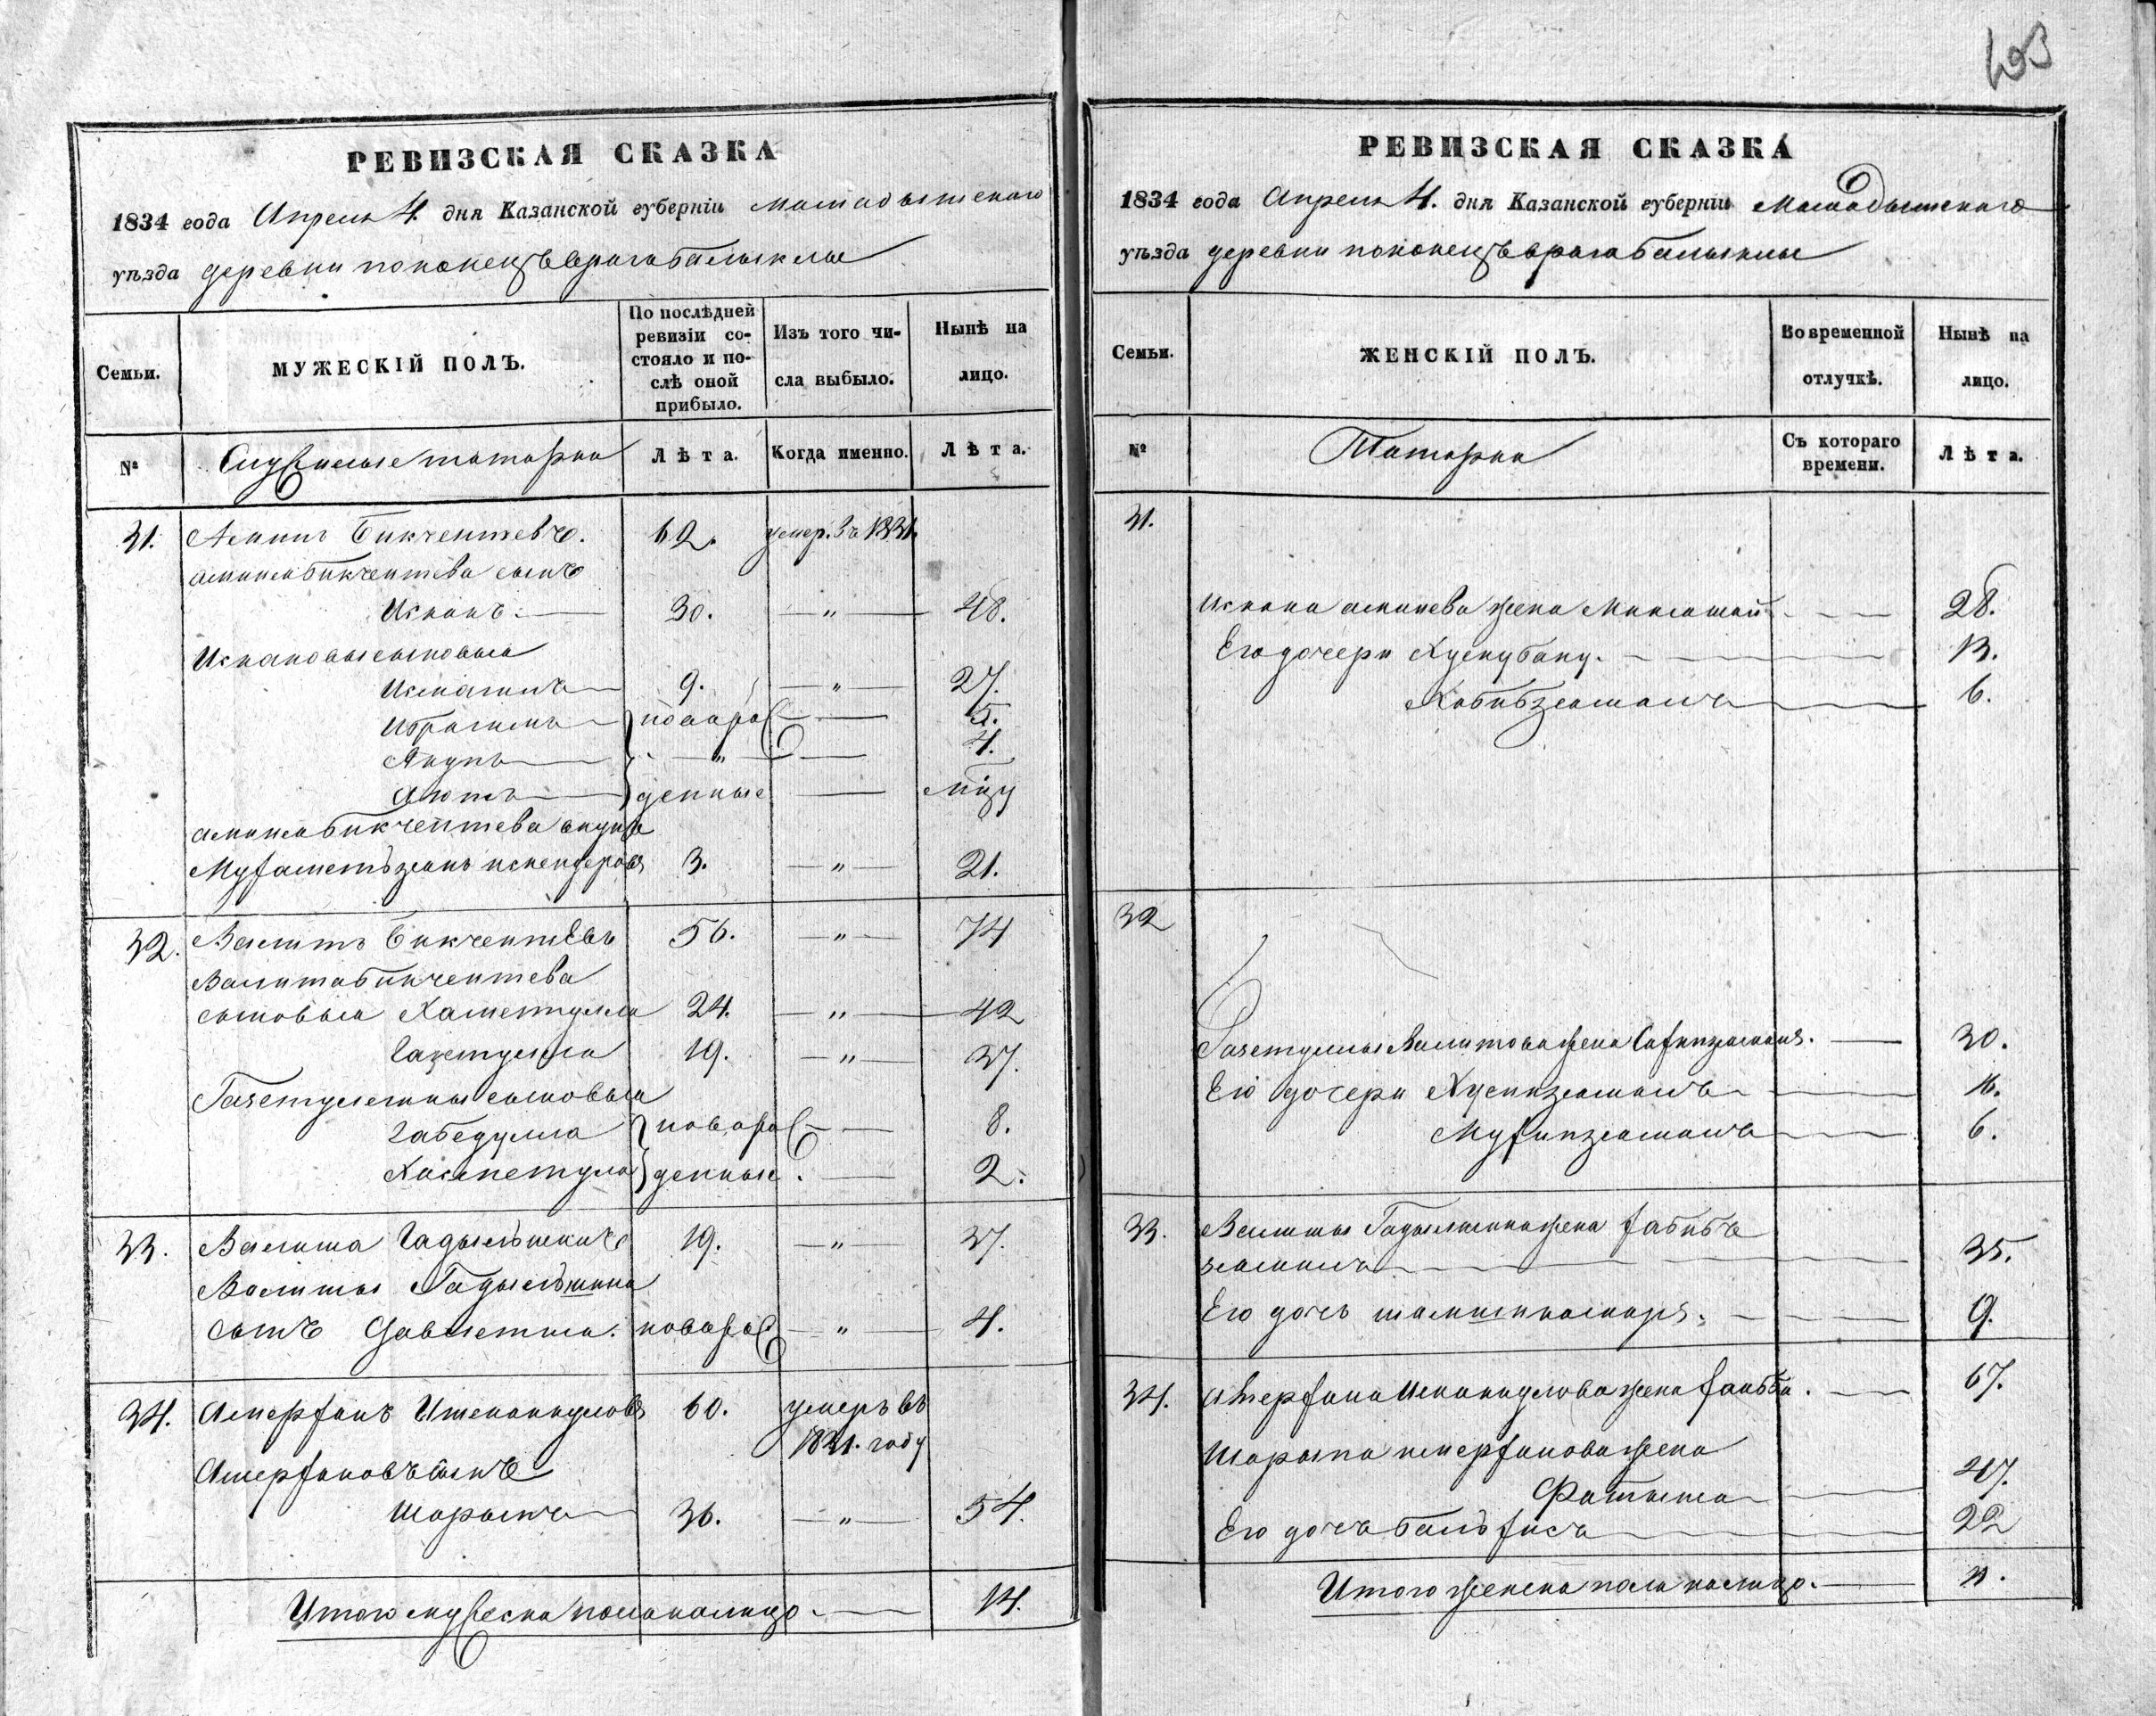 103
РЕВИЗСКАЯ СКАЗКА
1834 года Апреля 4 дня Казанской губерніи мамадышскаго
уѣзда деревни поконецъ врага балыклы
Семьи.
МУЖЕСКІЙ ПОЛЪ.
По послѣдней ревизіи состояло и послѣ оной прибыло.
Изъ того числа выбыло.
Нынѣ на лицо.
№ Служилые татары Лѣта. Когда именно. Лѣта.
31. Аминъ Бикчентевъ. 62. умер. въ 1831.
амина бикчентева сынъ
Исканъ 30. — „ — 48.
Искановы сыновья
Исмагилъ 9. — „ — 27.
Ибрагимъ новоро 5.
Якупъ — „ — 4.
Аюпъ жденные мцу
амина бикчентева внукъ
Мухаметьзянъ искендеровъ 3. — „ — 21.
32. Валитъ Бикчентевъ 56. — „ — 74
Валита бикчентева
сыновья Хаметулла 24. — „ — 42
Газетулла 19. — „ — 37.
Газетуллины сыновья
Габедулла новоро 8.
Хисметулла жденные. 2.
33. Валиша Гадыльшинъ 19. — „ — 37.
Валиши Гадыльшина
сынъ Давлетша. новорож — „ — 4.
34. Амерханъ Ишманкуловъ 60. умеръ въ
1831. году
Амерхановъ сынъ
Шарыпъ 36. — „ — 54.
Итого мужеска пола налицо. — 14.
РЕВИЗСКАЯ СКАЗКА
1834 года Апреля 4. дня Казанской губерніи Мамадышскаго
уѣзда деревни поконецъ врага балыклы
Семьи.
ЖЕНСКІЙ ПОЛЪ.
Во временной отлучкѣ.
Нынѣ на лицо.
№ Татарки Съ котораго времени. Лѣта.
31.
Искана аминева жена 28.
Его дочери Хуснубану. 13.
Хабибзямалъ 6.
32
Газетуллы Валитова жена Сафизямаля. 30.
Его дочери Хуснизямалъ 16.
Муфизямалъ 6.
33. Валиши Гадыльшина жена хабибъ
зямалъ 35.
Его дочь шамсикамаря. 9.
34. Амерхана Ишманкулова жена 67.
Шарыпа амерханова жена
Фатыма 47.
Его дочь бальхисъ 22
Итого женска пола налицо. — 11.